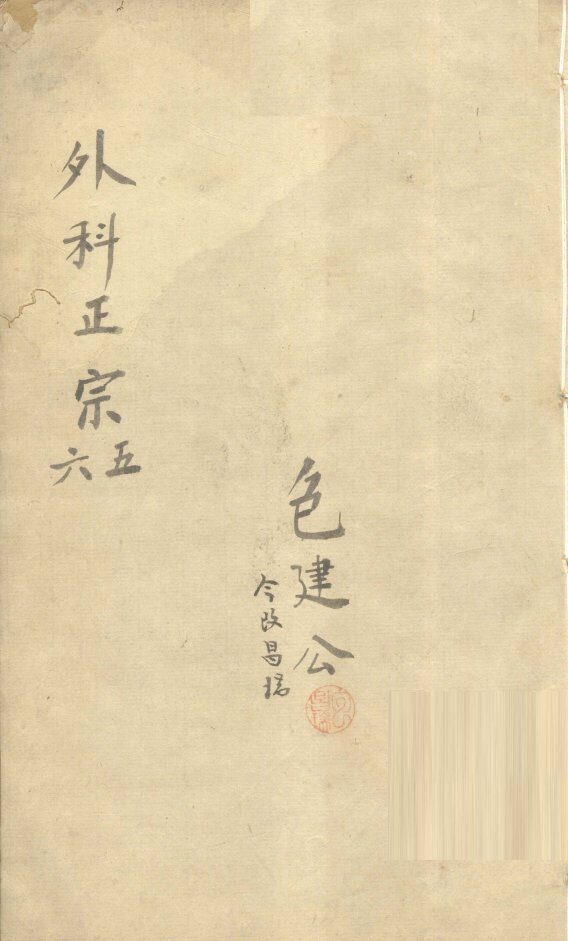 包建公
今改昌
外科正宗
五六